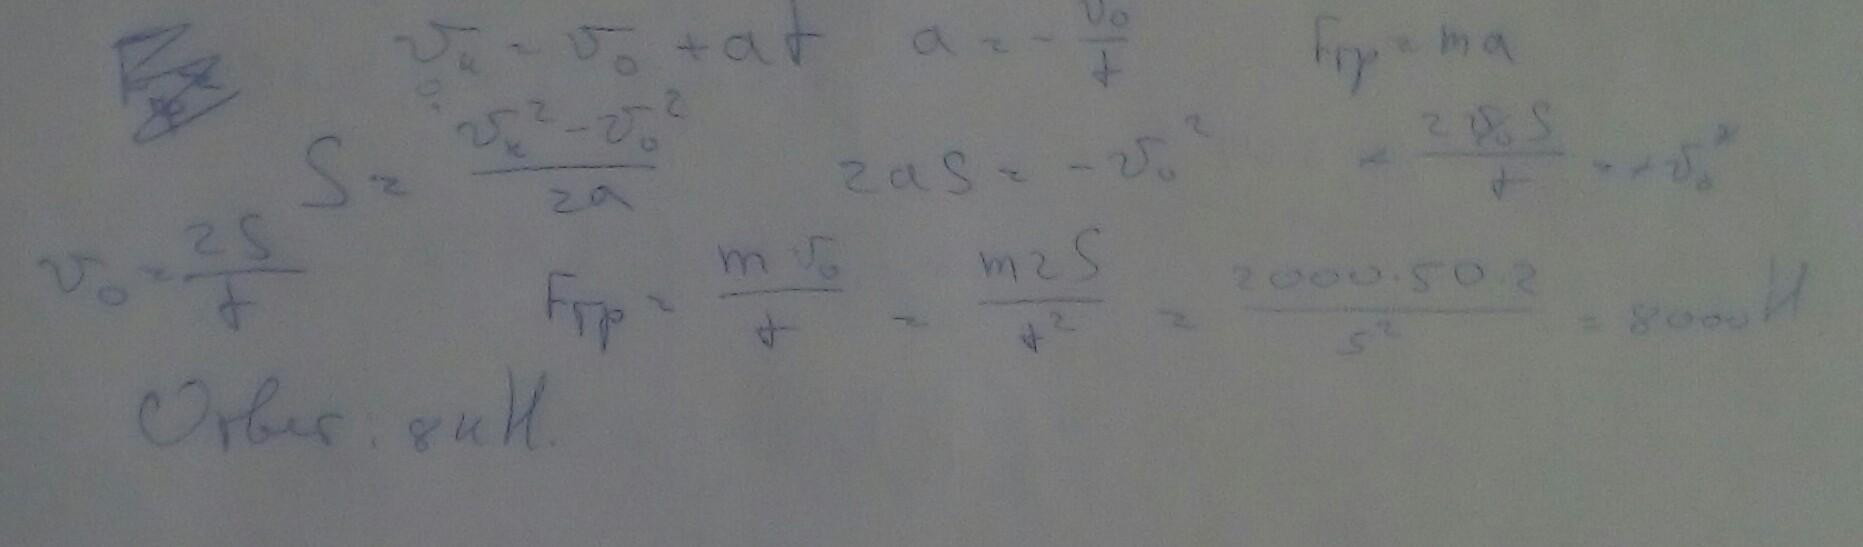 υₖ = υ₀ + at a = - υ₀/t Fтр = ma
0
S = (υₖ² - υ₀²)/2a 2aS = - υ₀² - 2υ₀S/t = - υ₀²
υ₀ = 2S/t Fтр = mυ₀/t = m2S/t² = 2000·50·2/5² = 8000 Н
Ответ: 8кН.